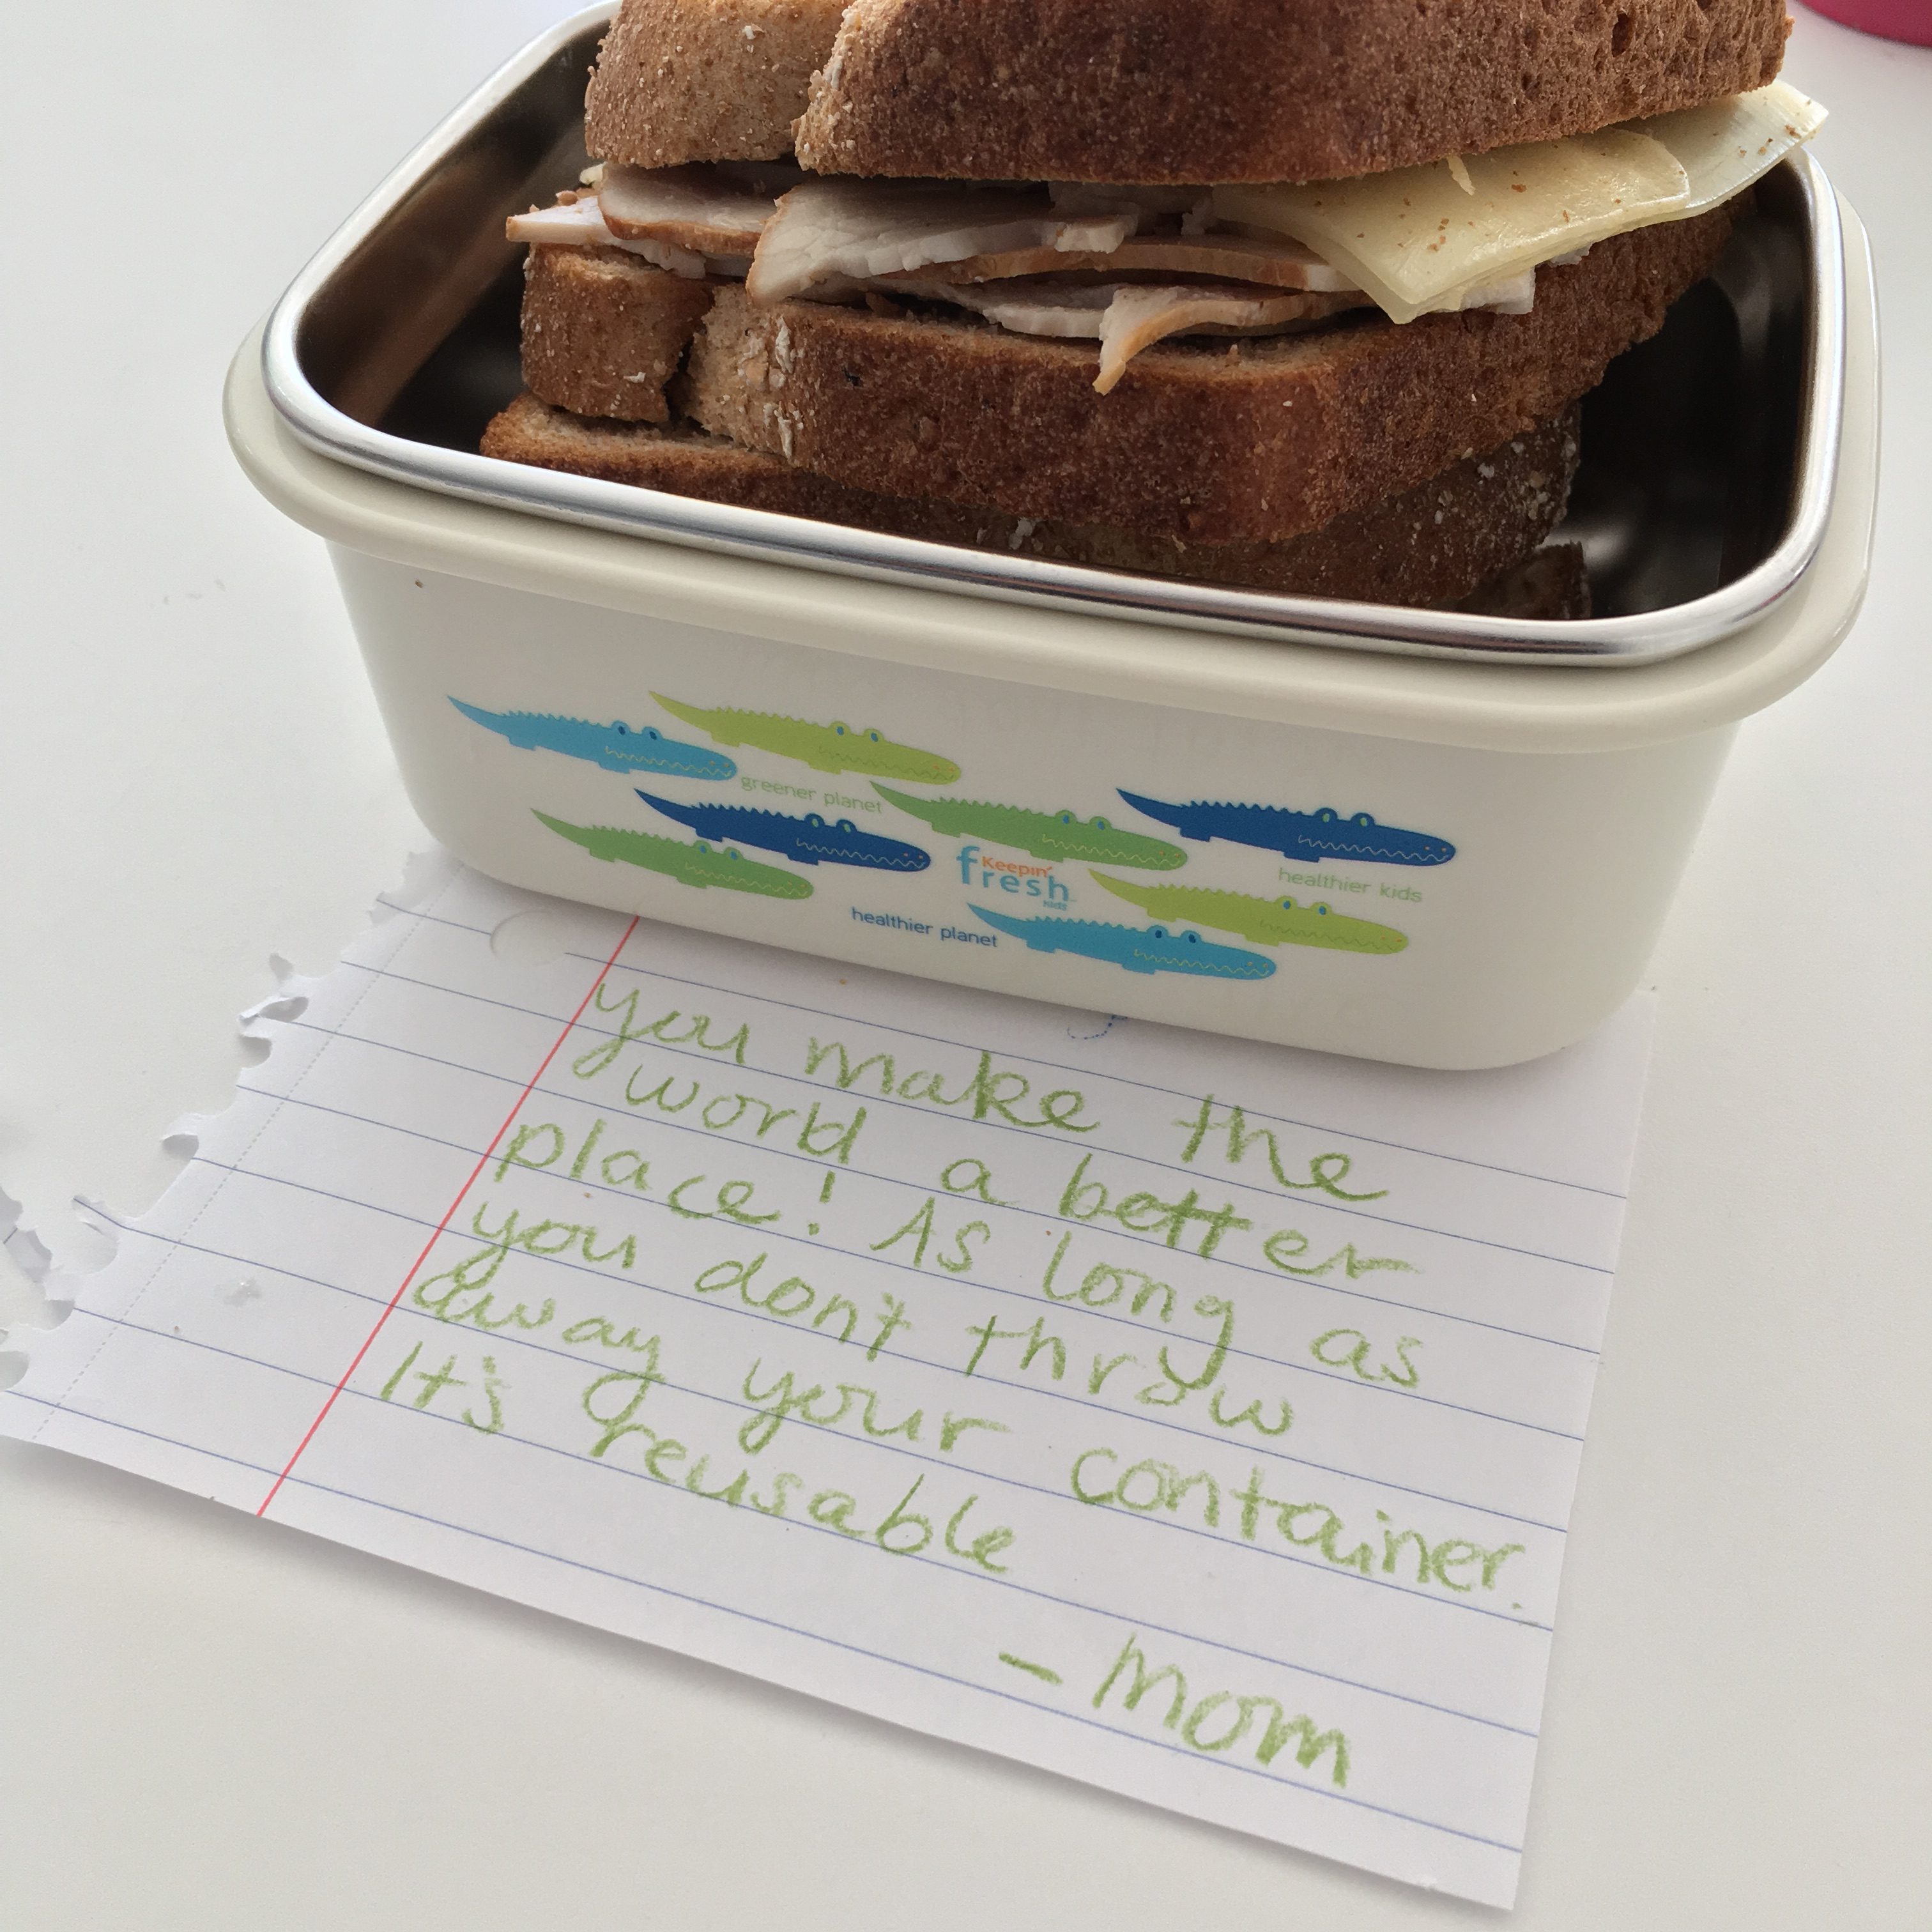 greener planet
Keepin'
fresh
kids
healthier kids
healthier planet
you make the
world a better
place! As long as
you don't throw
away your container.
It's reusable
- Mom